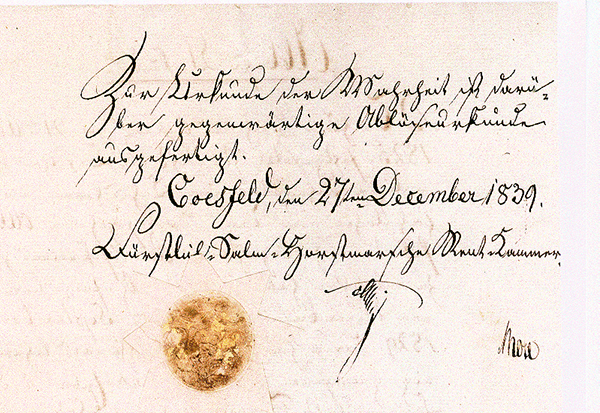 Zur Urkunde der Wahrheit ist darü-
ber gegenwärtige Ablöseurkunde
ausgefertigt.
Coesfeld, den 27ten December 1839.
Fürstlich-Salm-Horstmarsche Rent-Kammer.